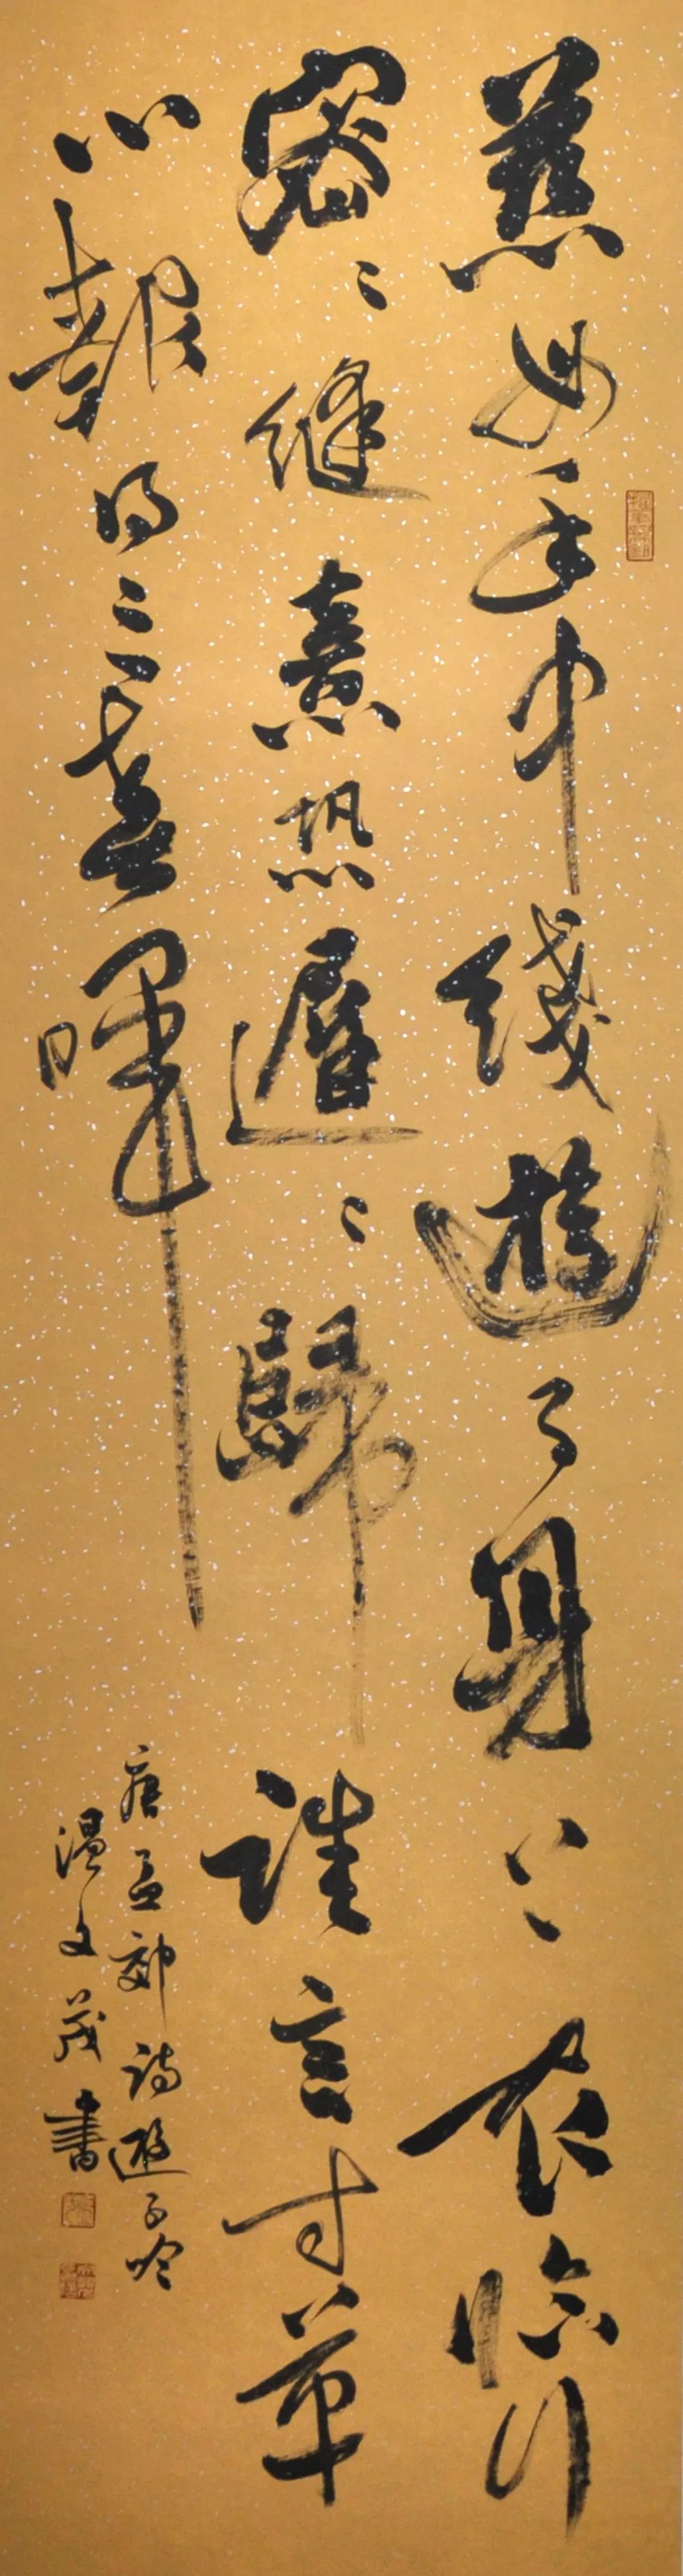 慈母手中綫遊子身上衣臨行
密〻縫意恐遲〻歸誰言寸草
心報得三春暉
唐孟郊詩遊子吟
溫文茂書